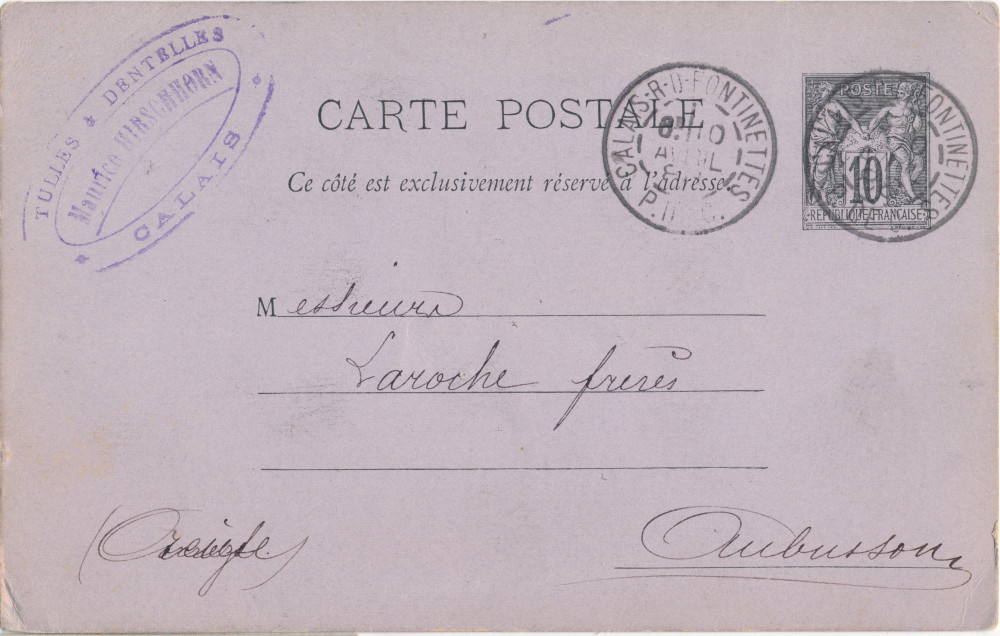 TULLES & DENTELLES
Maurice HIRSCHHORN
CALAIS
CARTE POSTALE
Ce côté est exclusivement réservé à l'adresse.
CALAIS-R-D-FONTINETTES
10
AVRIL
POSTES
10
RÉPUBLIQUE FRANÇAISE
FONTINETTES
Messieurs
Laroche frères
Aubusson